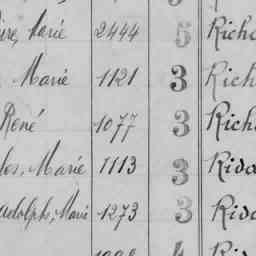 Marie 2444 5 Richa
Marie 1121 3 Rich
René 1077 3 Riche
Marie 1113 3 Rida
Adolphe, Marie 1273 3 Rida
4